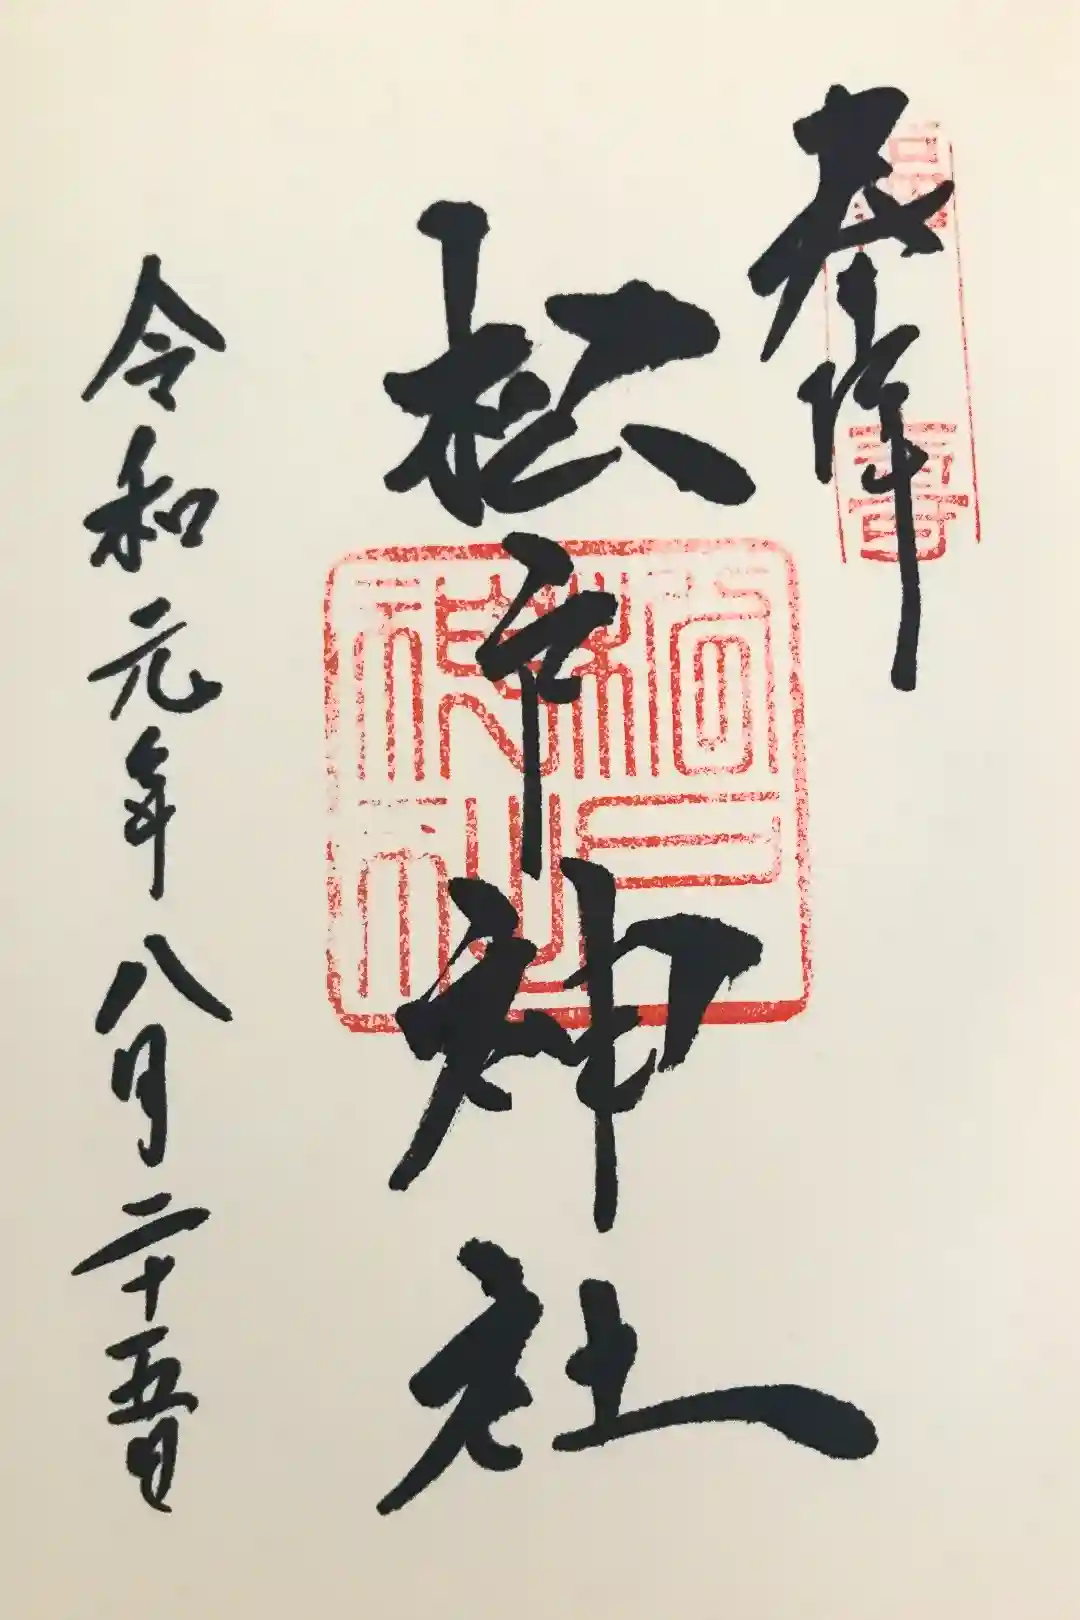 奉拝
松戸神社
令和元年八月二十五日